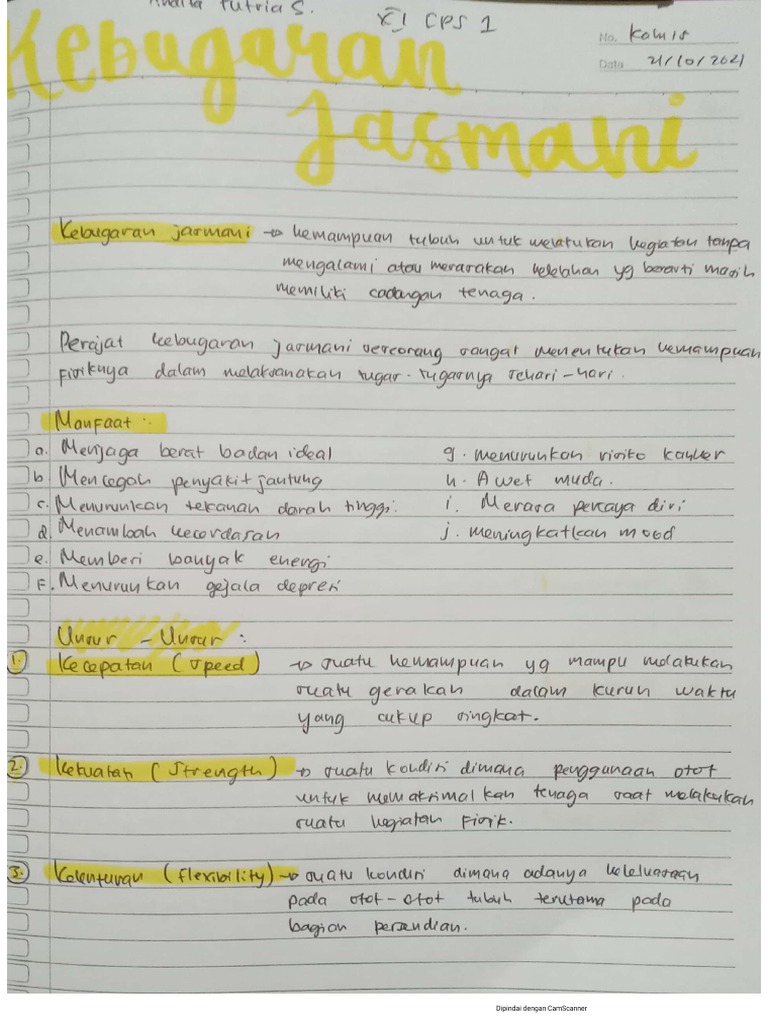 Putria S.
XI CPS 1
No. Kamis
Date 21/10/2021
Kebugaran
Jasmani
Kebugaran jasmani → kemampuan tubuh untuk melakukan kegiatan tanpa
mengalami atau merasakan kelelahan yg berarti masih
memiliki cadangan tenaga.
Derajat kebugaran jasmani seseorang sangat menentukan kemampuan
fisiknya dalam melaksanakan tugas-tugasnya sehari-hari.
Manfaat :
a. Menjaga berat badan ideal
b Mencegah penyakit jantung
c. Menurunkan tekanan darah tinggi.
d. Menambah kecerdasan
e. Memberi banyak energi
F. Menurunkan gejala depresi
g. menurunkan risiko kanker
h. Awet muda.
i. Merasa percaya diri
j. meningkatkan mood
Unsur - Unsur :
1. Kecepatan (speed) → suatu kemampuan yg mampu melakukan
suatu gerakan dalam kurun waktu
yang cukup singkat.
2. Kekuatan (Strength) → suatu kondisi dimana penggunaan otot
untuk memaksimalkan tenaga saat melakukan
suatu kegiatan fisik.
3. Kelenturan (flexibility) → suatu kondisi dimana adanya keleluasaan
pada otot-otot tubuh terutama pada
bagian persendian.
Dipindai dengan CamScanner